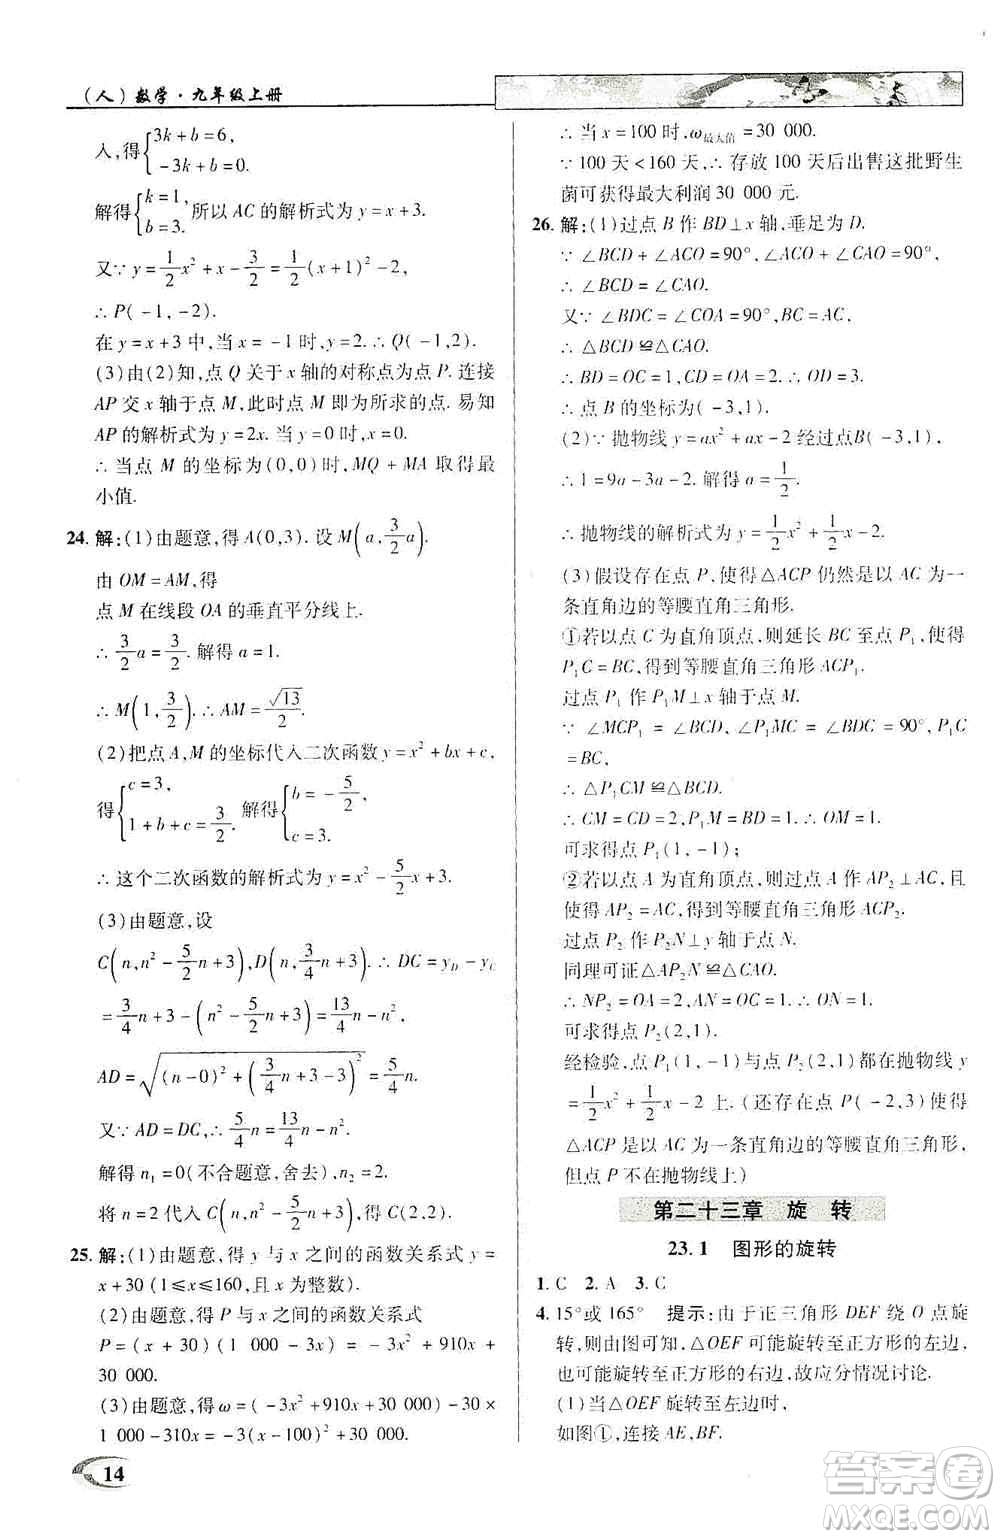 （人）数学·九年级上册
入,得{3k+b=6,
-3k+b=0.
解得{k=1,
b=3.
所以 AC 的解析式为 y=x+3.
又∵ y=1/2x²+x-3/2=1/2(x+1)²-2,
∴ P(-1,-2).
在 y=x+3 中,当 x=-1 时,y=2.∴ Q(-1,2).
(3)由(2)知,点 Q 关于 x 轴的对称点为点 P.连接
AP 交 x 轴于点 M,此时点 M 即为所求的点.易知
AP 的解析式为 y=2x.
∴ 当点 M 的坐标为(0,0)时,MQ+MA 取得最
小值.
24. 解:(1)由题意,得 A(0,3).设 M(a,3/2a).
由 OM=AM,得
点 M 在线段 OA 的垂直平分线上.
∴ 3/2a=3/2.解得 a=1.
∴ M(1,3/2).∴ AM=√13/2.
(2)把点 A,M 的坐标代入二次函数 y=x²+bx+c,
得{c=3,
1+b+c=3/2.
解得{b=-5/2,
c=3.
∴ 这个二次函数的解析式为 y=x²-5/2x+3.
(3)由题意,设
C(n,n²-5/2n+3),D(n,3/4n+3).∴ DC=y_D-y_C
=3/4n+3-(n²-5/2n+3)=13/4n-n²,
AD=√((n-0)²+(3/4n+3-3)²)=5/4n.
又∵ AD=DC,∴ 5/4n=13/4n-n².
解得 n₁=0(不合题意,舍去),n₂=2.
将 n=2 代入 C(n,n²-5/2n+3),得 C(2,2).
25. 解:(1)由题意,得 y 与 x 之间的函数关系式 y=
x+30(1≤x≤160,且 x 为整数).
(2)由题意,得 P 与 x 之间的函数关系式
P=(x+30)(1 000-3x)=-3x²+910x+
30 000.
(3)由题意,得 ω=(-3x²+910x+30 000)-30×
1 000-310x=-3(x-100)²+30 000.
14
∴ 当 x=100 时,ω最大值=30 000.
∵ 100 天<160 天,∴ 存放 100 天后出售这批野生
菌可获得最大利润 30 000 元.
26. 解:(1)过点 B 作 BD⊥x 轴,垂足为 D.
∵ ∠BCD+∠ACO=90°,∠ACO+∠CAO=90°,
∴ ∠BCD=∠CAO.
又∵ ∠BDC=∠COA=90°,BC=AC,
∴ △BCD≌△CAO.
∴ BD=OC=1,CD=OA=2.∴ OD=3.
∴ 点 B 的坐标为(-3,1).
(2)∵ 抛物线 y=ax²+ax-2 经过点 B(-3,1),
∴ 1=9a-3a-2.解得 a=1/2.
∴ 抛物线的解析式为 y=1/2x²+1/2x-2.
(3)假设存在点 P,使得△ACP 仍然是以 AC 为一
条直角边的等腰直角三角形.
①若以点 C 为直角顶点,则延长 BC 至点 P₁,使得
P₁C=BC,得到等腰直角三角形 ACP₁.
过点 P₁ 作 P₁M⊥x 轴于点 M.
∵ ∠MCP₁=∠BCD,∠P₁MC=∠BDC=90°,P₁C
=BC,
∴ △P₁CM≌△BCD.
∴ CM=CD=2,P₁M=BD=1.∴ OM=1.
可求得点 P₁(1,-1);
②若以点 A 为直角顶点,则过点 A 作 AP₂⊥AC,且
使得 AP₂=AC,得到等腰直角三角形 ACP₂.
过点 P₂ 作 P₂N⊥y 轴于点 N.
同理可证△AP₂N≌△CAO.
∴ NP₂=OA=2,AN=OC=1.∴ ON=1.
可求得点 P₂(2,1).
经检验,点 P₁(1,-1)与点 P₂(2,1)都在抛物线 y
=1/2x²+1/2x-2 上.(还存在点 P(-2,3)使得
△ACP 是以 AC 为一条直角边的等腰直角三角形,
但点 P 不在抛物线上)
第二十三章 旋 转
23.1 图形的旋转
1. C 2. A 3. C
4. 15°或 165° 提示:由于正三角形 DEF 绕 O 点旋
转,则由图可知,△OEF 可能旋转至正方形的左边,
也可能旋转至正方形的右边,故应分情况讨论.
(1)当△OEF 旋转至左边时,
如图①,连接 AE,BF.
答案卷
MXQE.COM